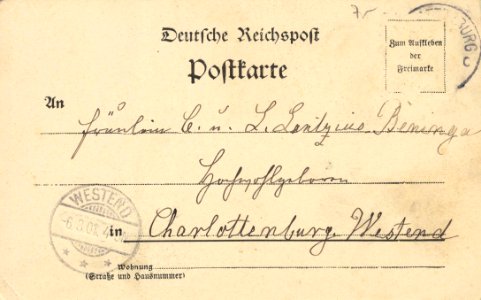 7
BURG
Deutsche Reichspost
Postkarte
Zum Aufkleben
der
Freimarke
An
Fräulein C. u. L. Lantzius Beninga
Hochwohlgeboren
WESTEND
in Charlottenburg Westend
Wohnung
(Straße und Hausnummer)